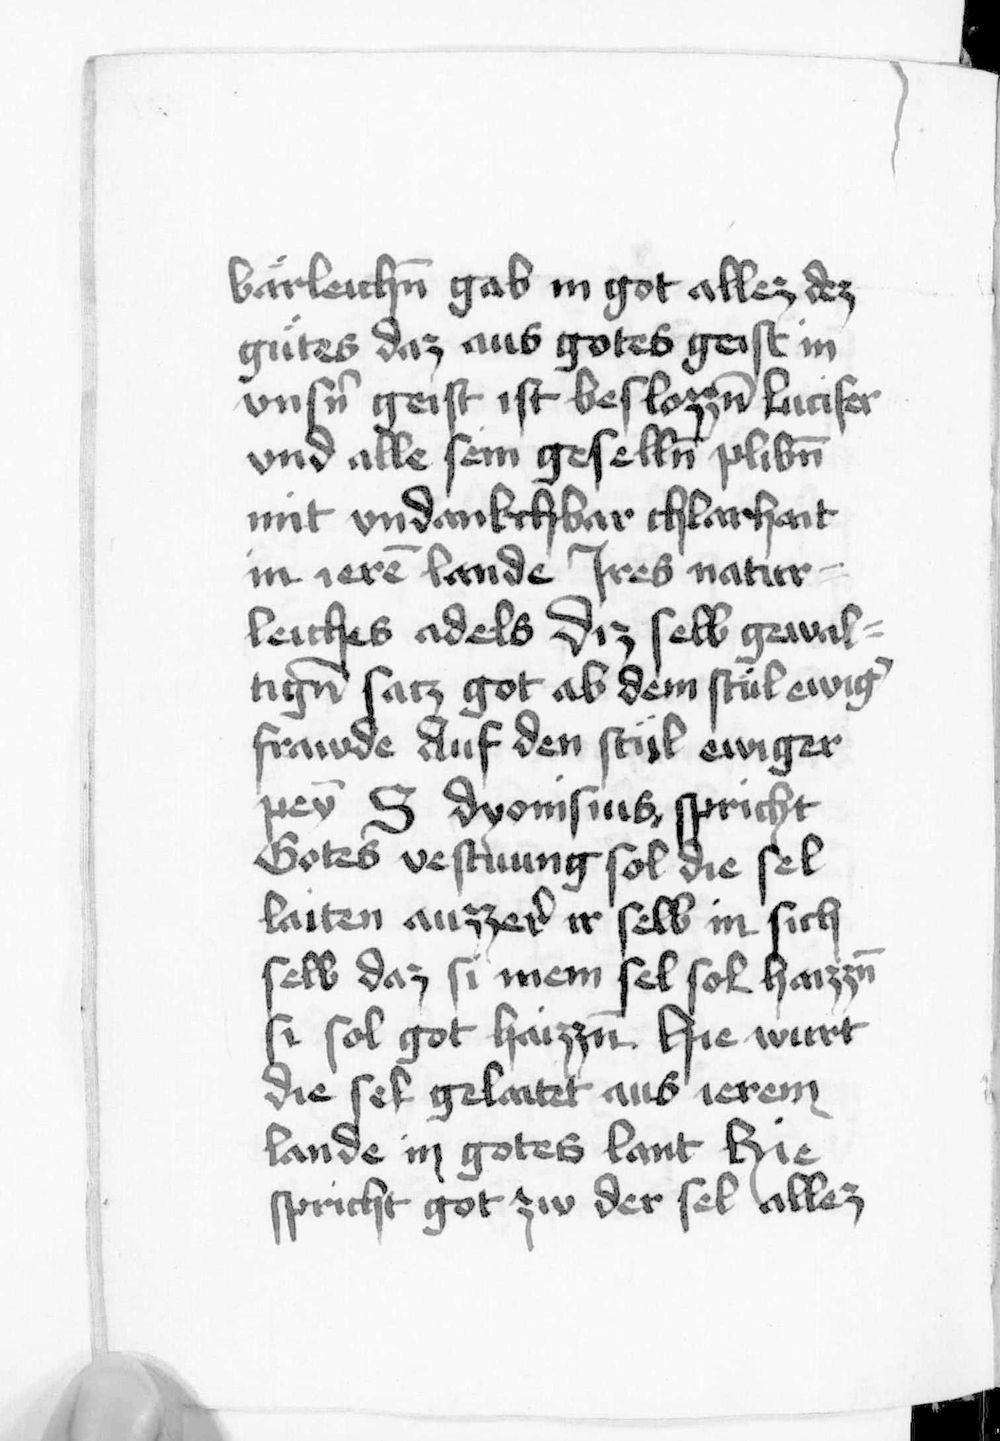 bärleichn̄ gab in got allez dez
gütes daz aus gotes geist in
vnsn̄ geist ist beslozzn̄ lucifer
vnd alle sein geselln̄ plibn̄
mit vndankchbar chlarhait
in ierē lande Ires natur=
leiches adels Diz selb gewal=
tign̄ satz got ab dem stůl ewig̉
frawde Auf den stůl ewiger
peȳ S dyonisius, spricht
Gotes vestnung sol die sel
laiten auzzer̉ ir selb in sich
selb daz si mein sel sol haizzn̄
si sol got haizzn̄. Hie wurt
die sel gelaitet aus ierem
lande in gotes lant Hie
spricht got zw der sel allez